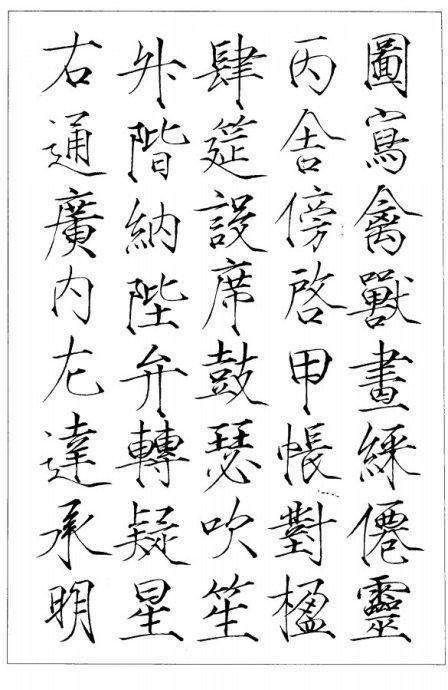 圖寫禽獸畫綵僊靈
丙舍傍啓甲帳對楹
肆筵設席鼓瑟吹笙
外階納陛弁轉疑星
右通廣内左達承明